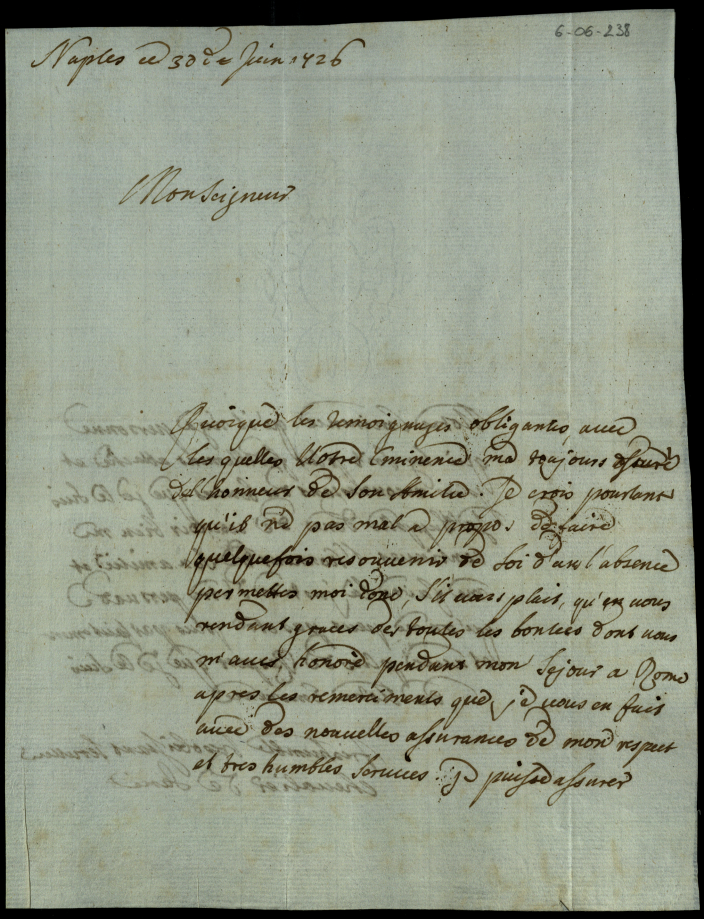 6-06-238
Naples ce 30 de Juin 1726
Monseigneur
Quoique les temoignages obligantes, avec
les quelles Votre Eminence ma toujours assuré
del'honneur de son Amitie. Je crois pourtant
qu'il n'e pas mal a propos de faire
quelquefois resouvenir de soi dans l'absence
permettes moi donc, s'il vous plait, qu'en vous
rendant graces des toutes les bontees dont vous
m'aves, honoré pendant mon sejour a Rome
apres les remerciments que je vous en fait
avec des nouvelles assurances de mon respect
et tres humbles services. Je puisse assurer